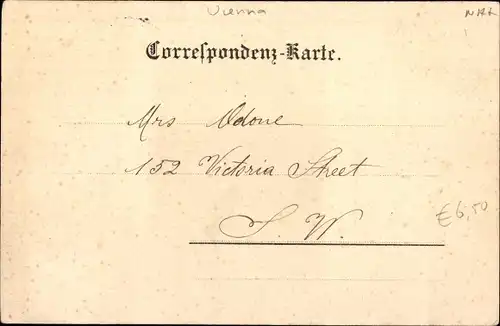 Vienna
Correspondenz-Karte.
Mrs Odone
152 Victoria Street
S. W.
€6,50